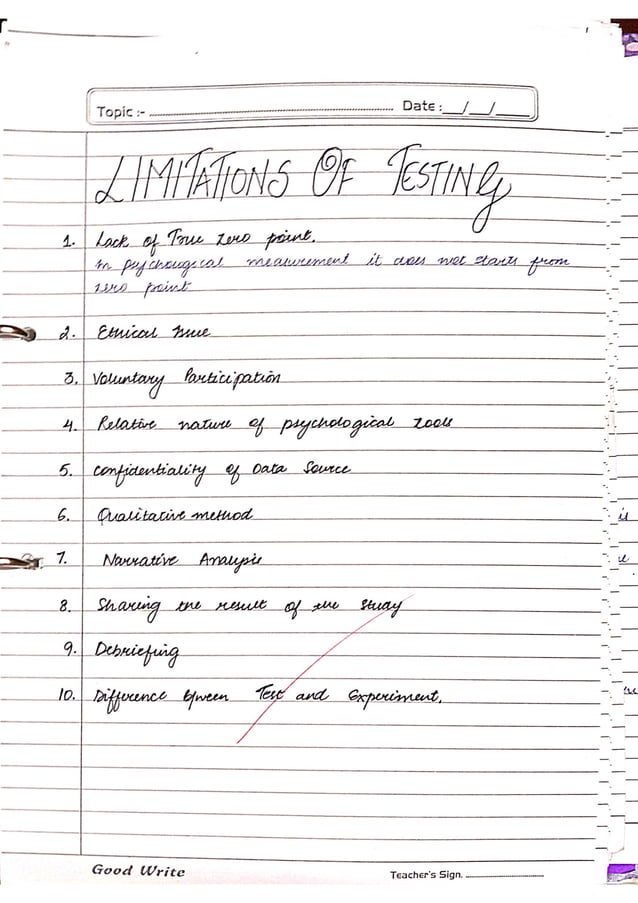 Topic :- Date : __/__/____
LIMITATIONS OF TESTING
1. Lack of True zero point.
In psychological measurement it does not starts from
zero point
2. Ethical Issue
3. Voluntary Participation
4. Relative nature of psychological tools
5. Confidentiality of Data Source
6. Qualitative method
7. Narrative Analysis
8. Sharing the result of the study
9. Debriefing
10. Difference btween Test and Experiment.
Good Write Teacher's Sign.